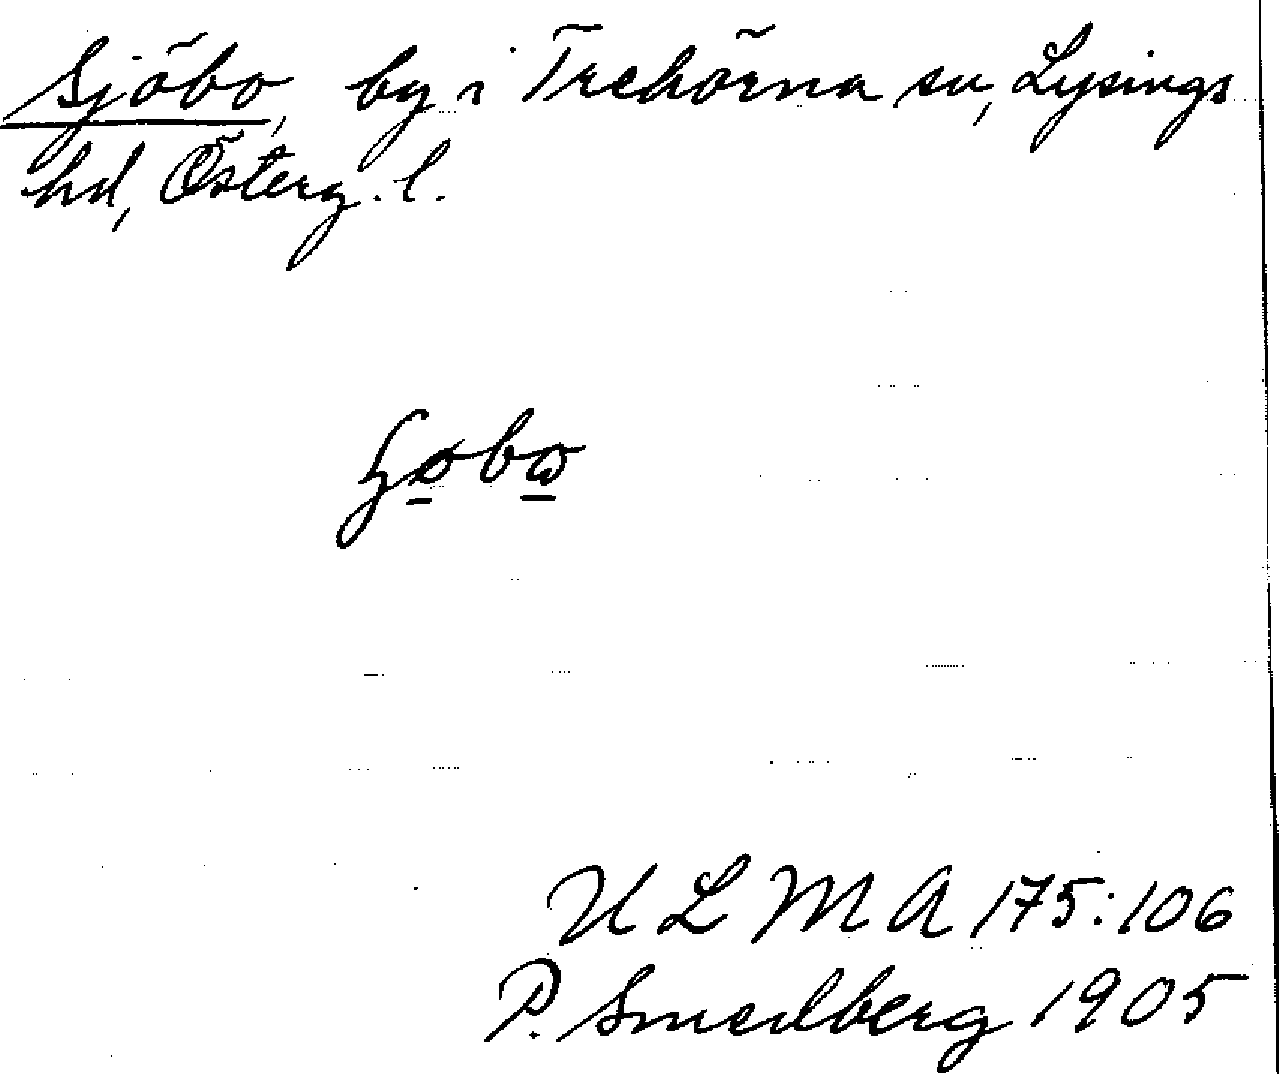 Sjöbo, by i Trehörna sn, Lysings
hd, Österg. l.
ULMA 175:106
P. Smedberg 1905